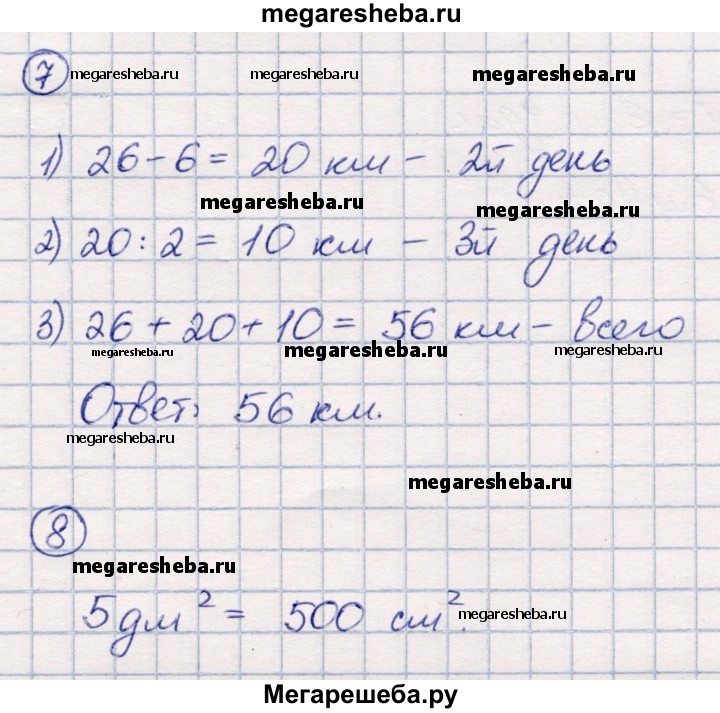 megaresheba.ru
7 megaresheba.ru megaresheba.ru megaresheba.ru
1) 26 - 6 = 20 км - 2й день
megaresheba.ru megaresheba.ru
2) 20 : 2 = 10 км - 3й день
3) 26 + 20 + 10 = 56 км - всего
megaresheba.ru megaresheba.ru megaresheba.ru
Ответ: 56 км.
megaresheba.ru
megaresheba.ru
8
megaresheba.ru
5 дм² = 500 см².
megaresheba.ru
Мегарешеба.ру